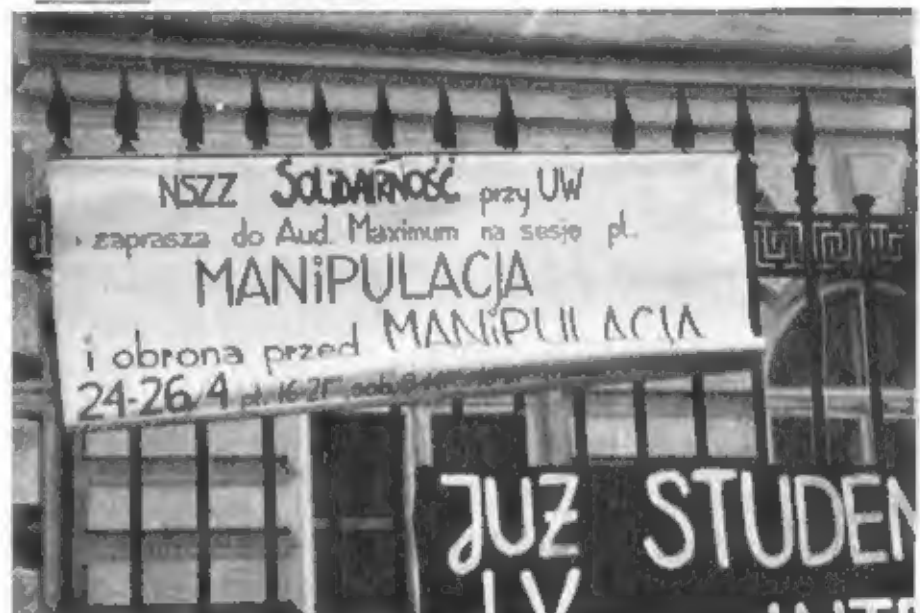 NSZZ SOLiDARNOŚĆ przy UW
zaprasza do Aud. Maximum na sesję pt.
MANiPULACJA
i obrona przed MANiPULACJĄ
24-26.4 pt. 16-21
JUŻ STUDEN